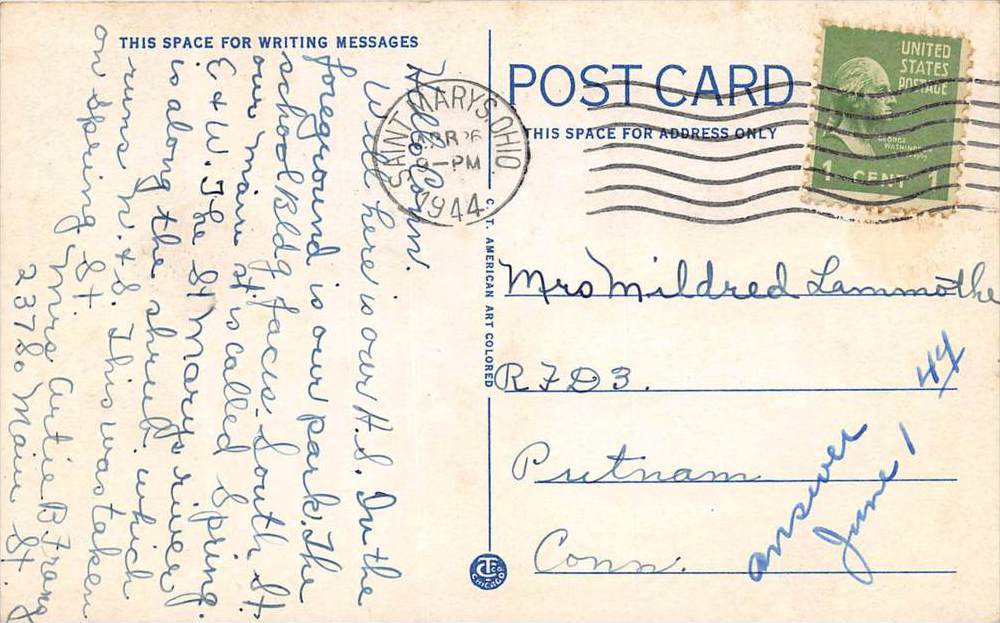 THIS SPACE FOR WRITING MESSAGES
Hello Conn.
Well here is our H.S. In the
foreground is our park. The
school Bldg faces South St
our main St is called Spring.
E & W. The St Marys river
is along the shrub. which
runs N. & S. This was taken
on Spring St
Mrs Artie B Franz
237 So Main St.
POST CARD
THIS SPACE FOR ADDRESS ONLY
SAINT MARYS, OHIO
26
8-PM
1944
UNITED
STATES
POSTAGE
GEORGE
WASHINGTON
1 CENT 1
C. T. AMERICAN ART COLORED
Mrs Mildred Lammothe
R F D 3.
Putnam
Conn.
44
answer
June 1
CHICAGO